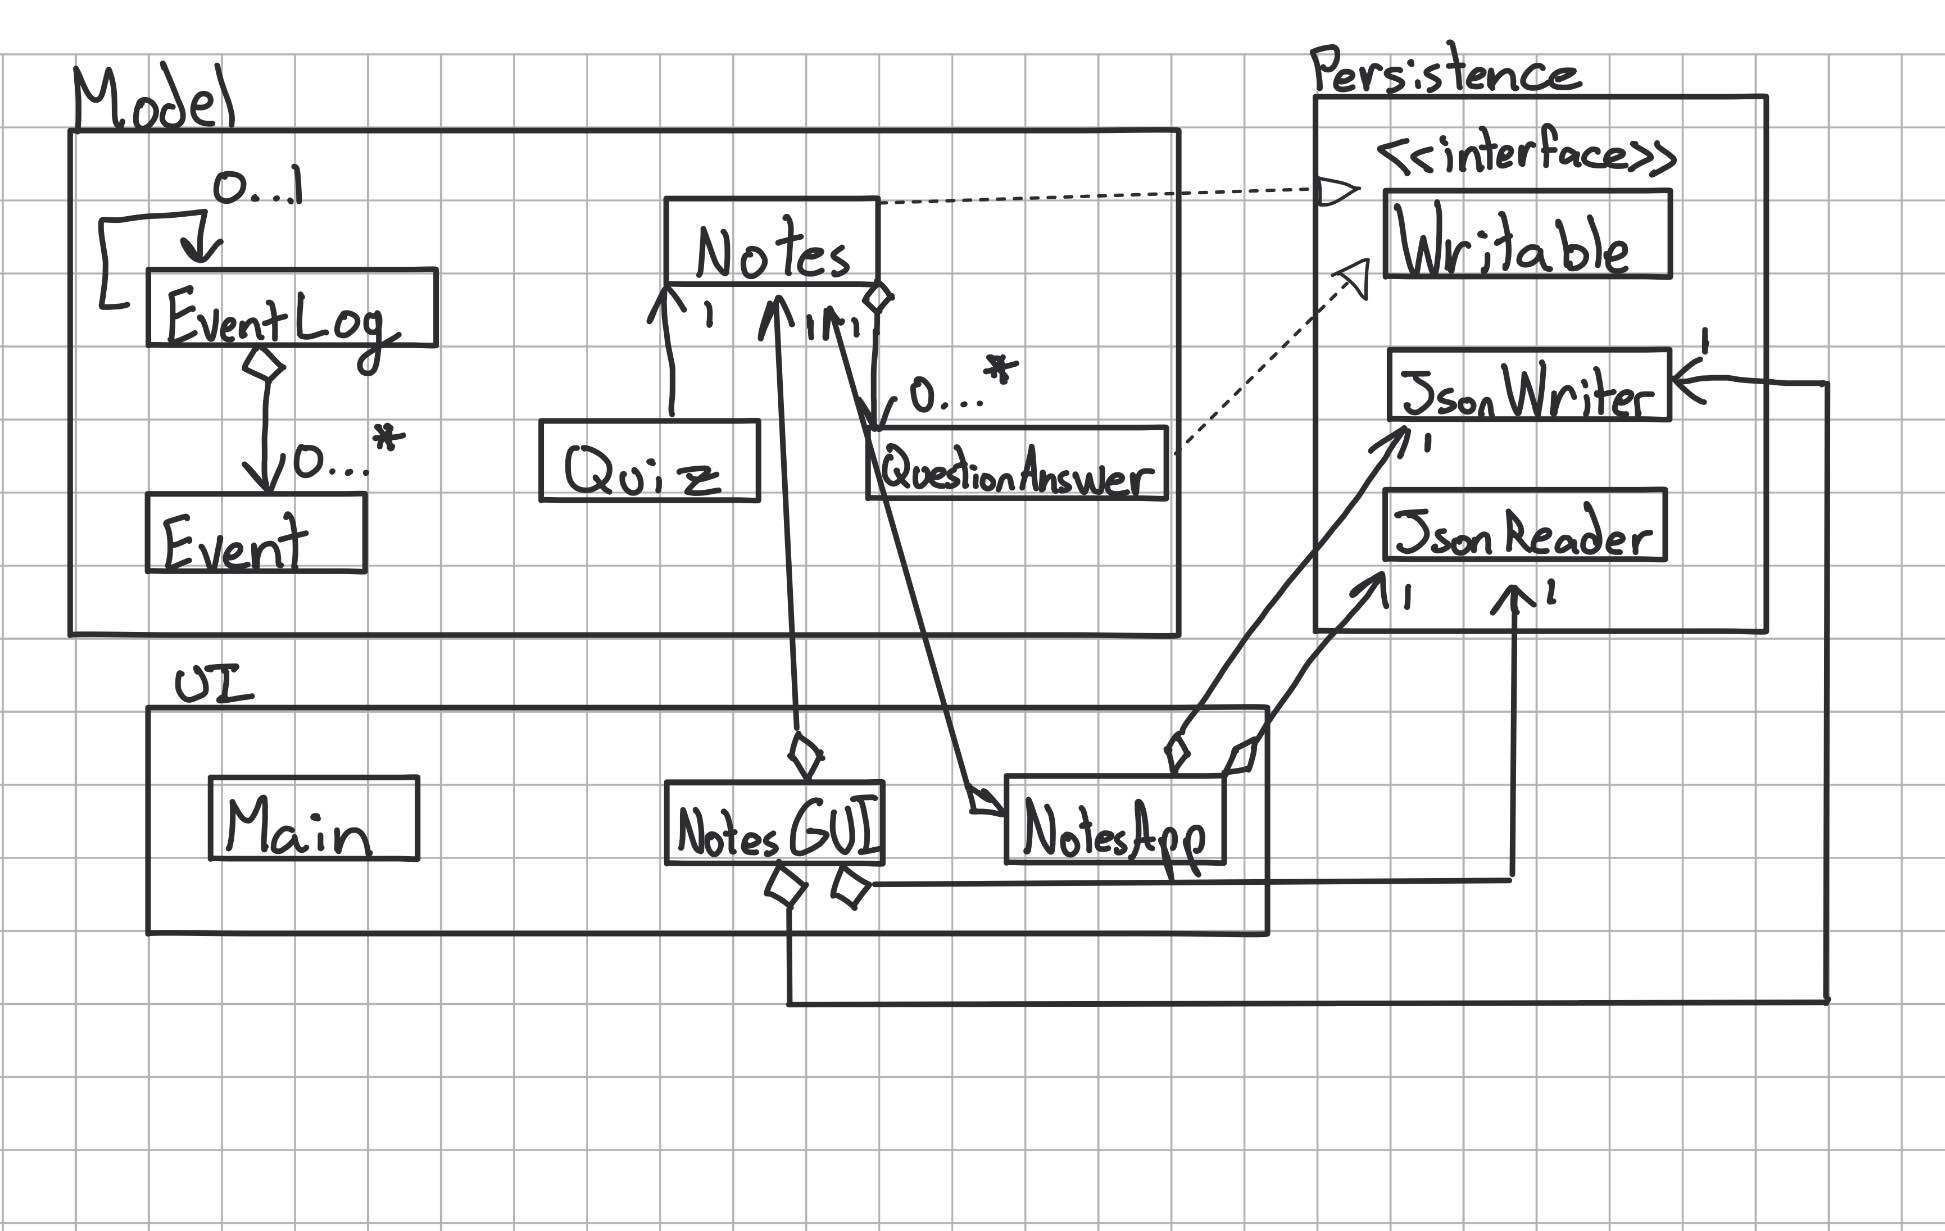 Model
0...1
EventLog
0...*
Event
Notes
1
1
1
1
0...*
Quiz
QuestionAnswer
Persistence
<<interface>>
Writable
1
JsonWriter
1
JsonReader
1
1
UI
Main
NotesGUI
NotesApp